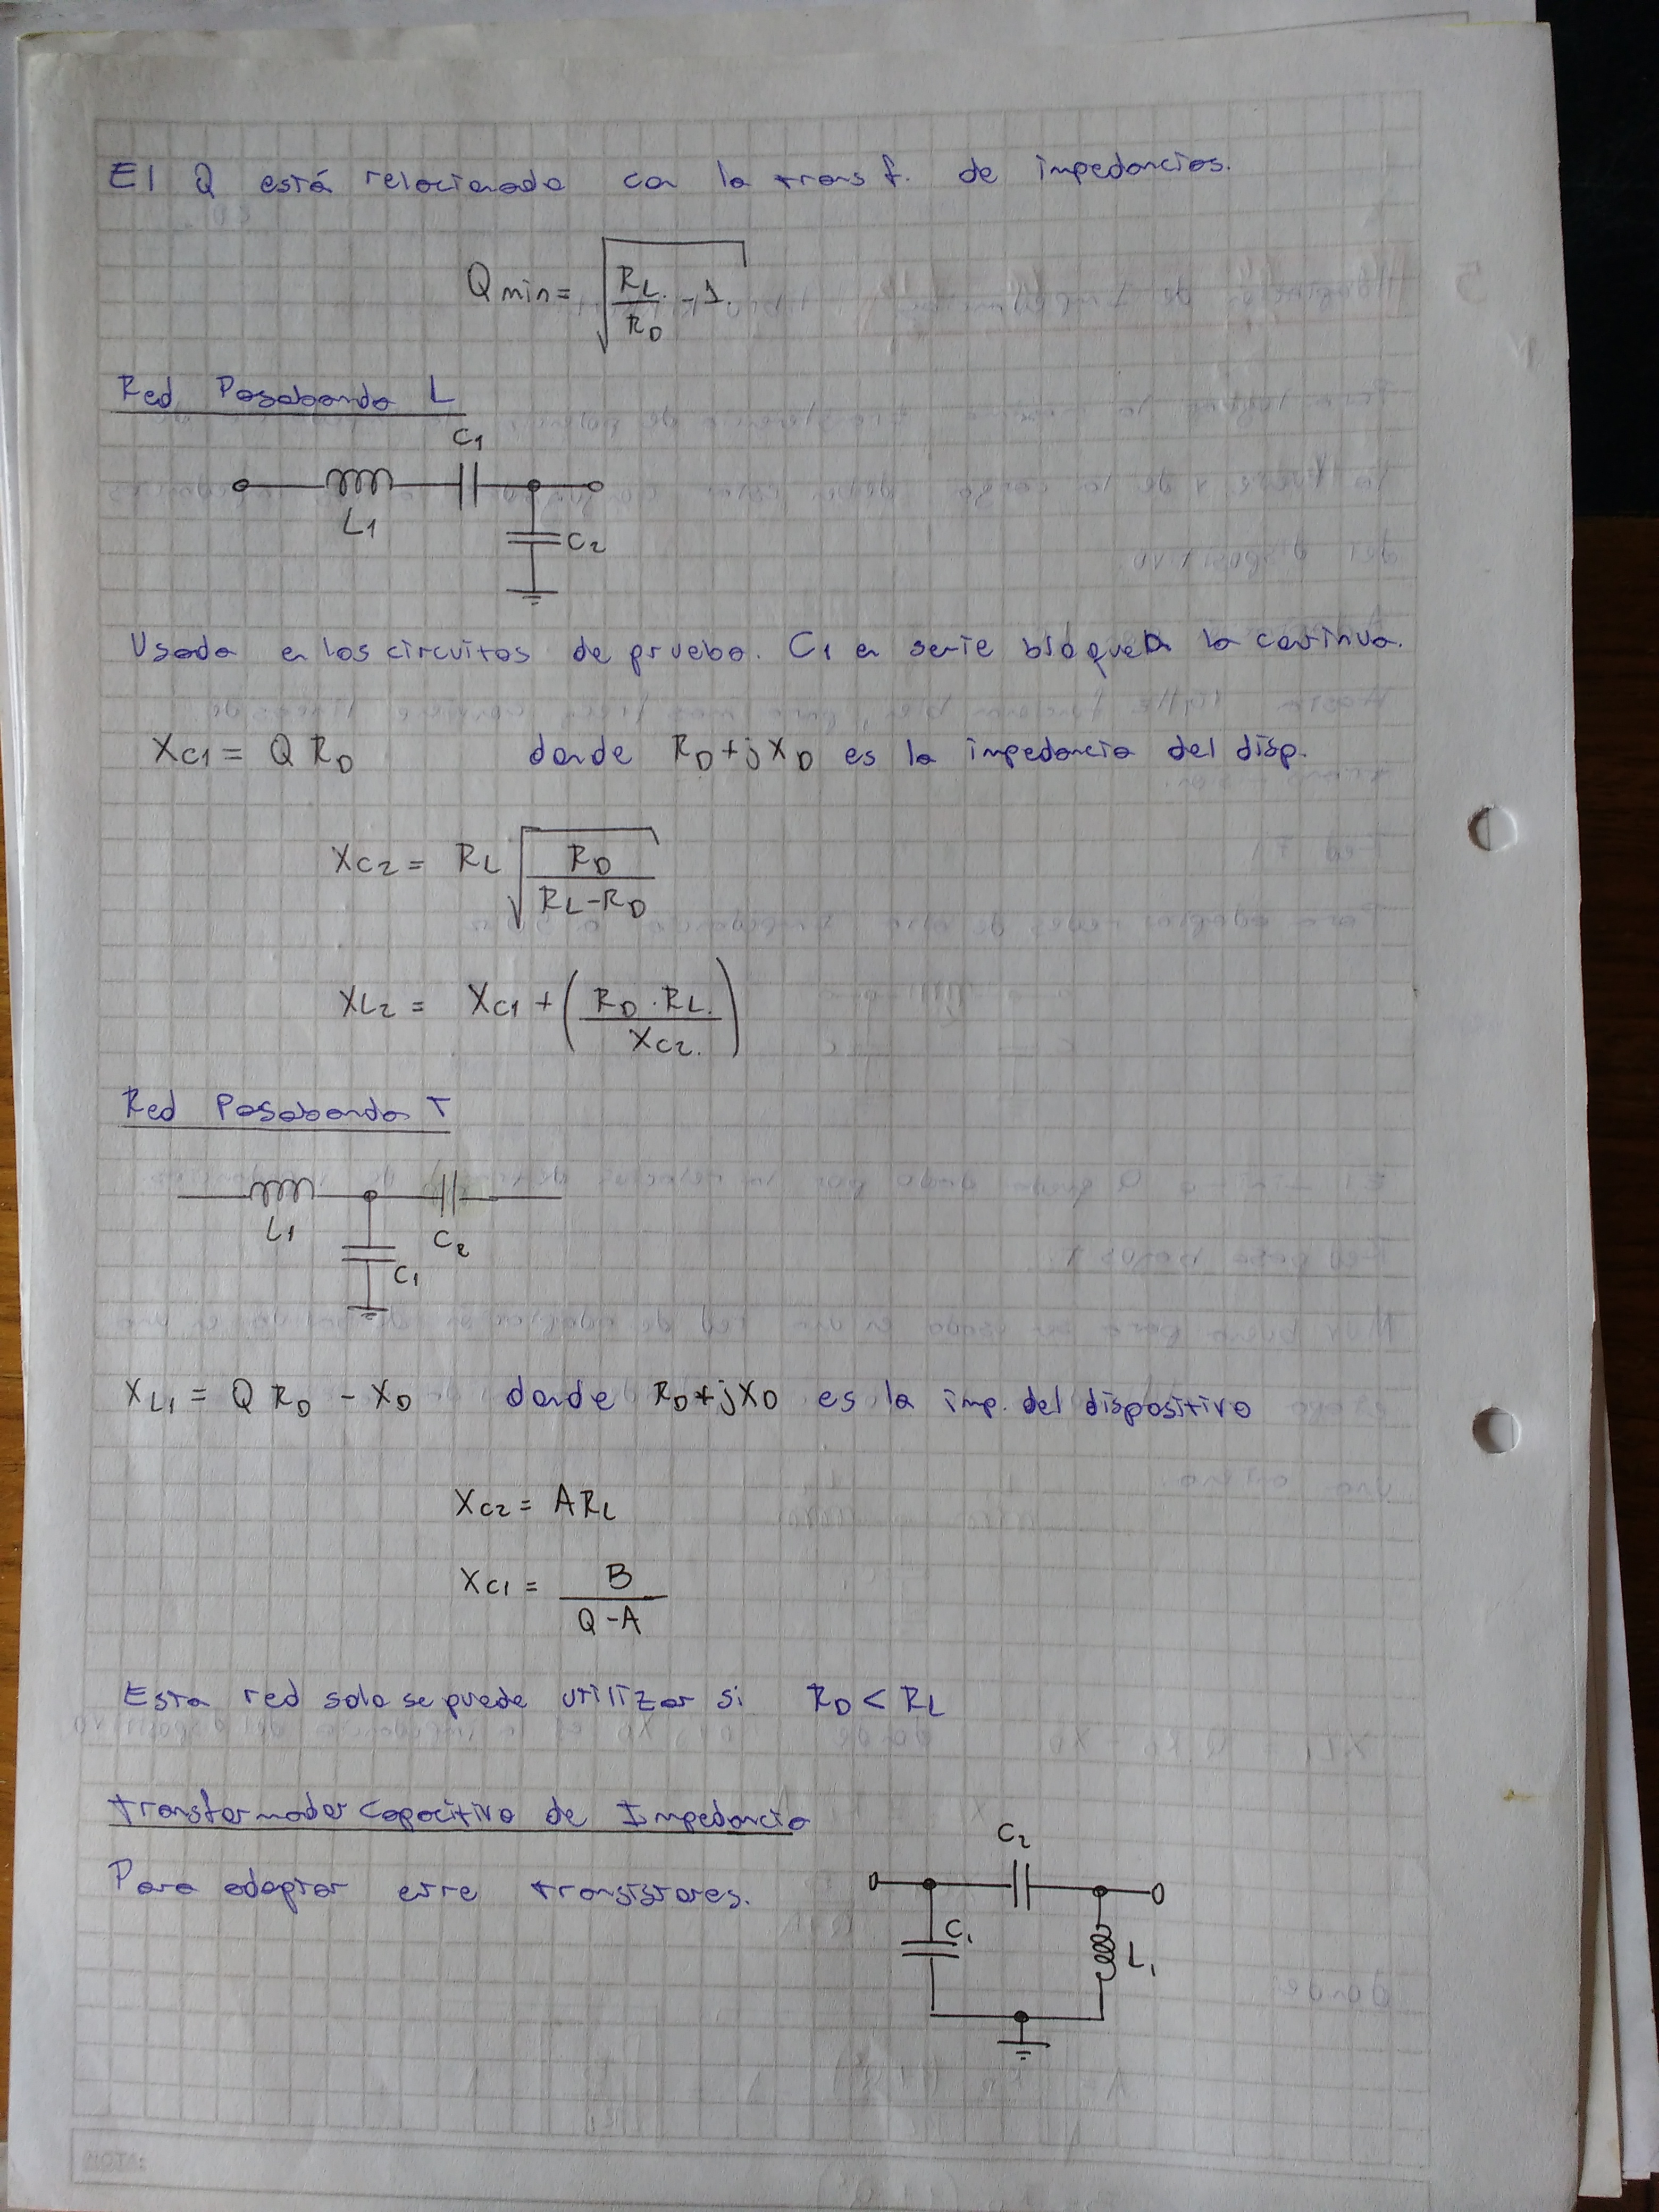 El Q está relacionado con la transf. de impedancias.
Qmin = √(RL/RD - 1)
Red Pasabanda L
C1
L1
C2
Usada en los circuitos de prueba. C1 en serie bloquea la continua.
XC1 = Q RD donde RD+jXD es la impedancia del disp.
XC2 = RL √(RD/(RL-RD))
XL2 = XC1 + (RD . RL. / XC2.)
Red Pasabanda T
L1
C2
C1
XL1 = Q RD - XD donde RD+jXD es la imp. del dispositivo
XC2 = A RL
XC1 = B/(Q-A)
Esta red solo se puede utilizar si RD < RL
Transformador Capacitivo de Impedancia
C2
Para adaptar entre transistores.
C1
L1
NOTA: